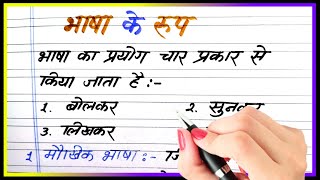 भाषा के रूप
भाषा का प्रयोग चार प्रकार से
किया जाता है :-
1. बोलकर 2. सुनकर
3. लिखकर
1 मौखिक भाषा :-